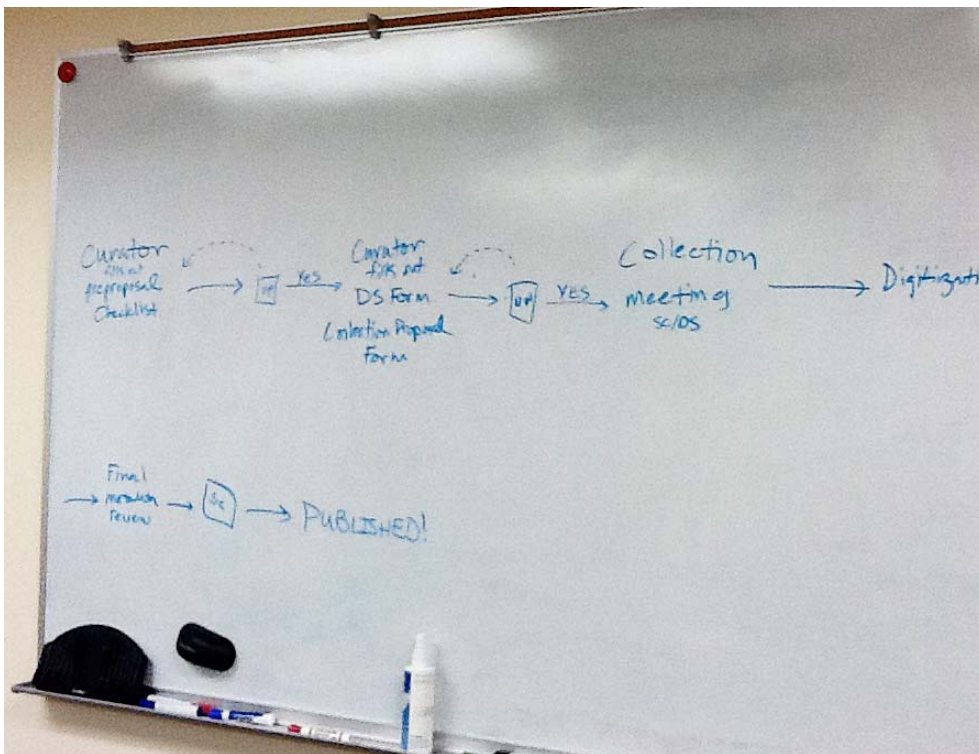 Curator
fills out
preproposal
Checklist
YES
Curator
fills out
DS Form
Collection Proposal
Form
YES
Collection
meeting
SC/DS
Digitizati
Final
metadata
review
SC
PUBLISHED!